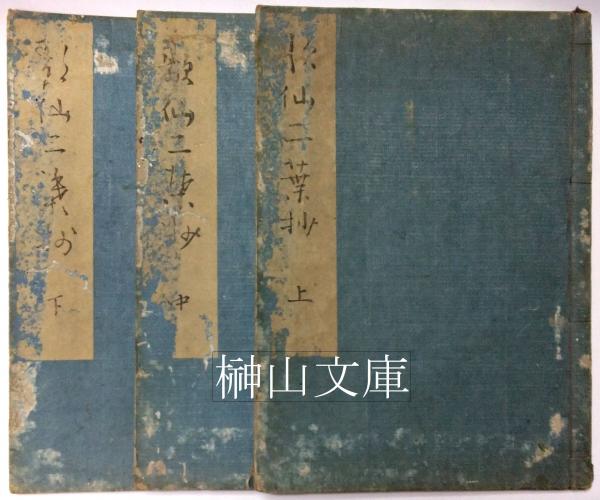 歌仙二葉抄 上
歌仙二葉抄 中
歌仙二葉抄 下
榊山文庫